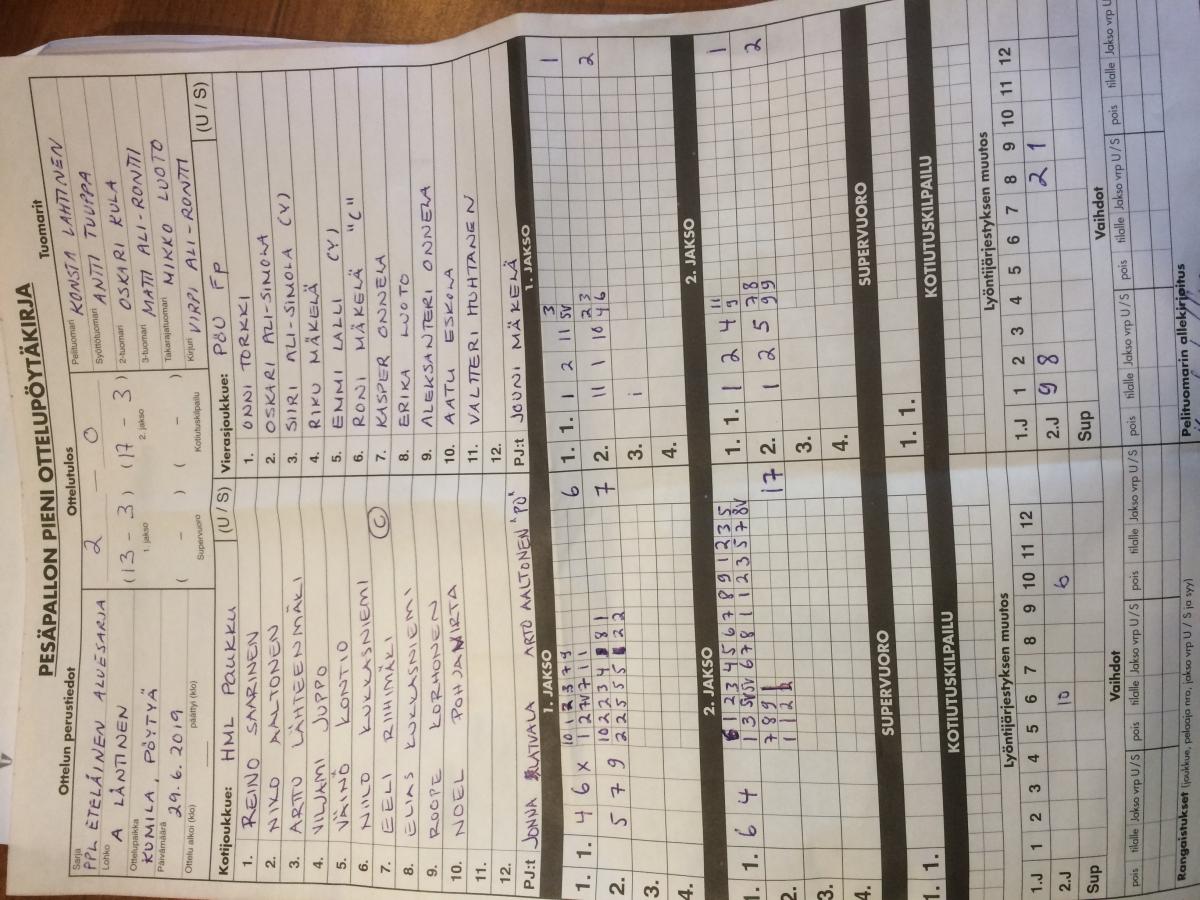 PESÄPALLON PIENI OTTELUPÖYTÄKIRJA
Ottelun perustiedot
Ottelutulos
Tuomarit
Sarja
PPL ETELÄINEN ALUESARJA
Lohko
A LÄNTINEN
Ottelupaikka
KUMILA, PÖYTYÄ
Päivämäärä
29.6.2019
Ottelu alkoi (klo)
päättyi (klo)
2 — 0
(13 - 3) (17 - 3)
1. jakso
2. jakso
( - ) ( - )
Supervuoro
Kotiutuskilpailu
Pelituomari KONSTA LAHTINEN
Syöttötuomari ANTTI TUUPPA
2-tuomari OSKARI KULA
3-tuomari MATTI ALI-RONTTI
Takarajatuomari MIKKO LUOTO
Kirjuri VIRPI ALI-RONTTI
Kotijoukkue: HML PAUKKU (U / S)
1. REINO SAARINEN
2. NIKO AALTONEN
3. ARTTU LÄHTEENMÄKI
4. VILJAMI JUPPO
5. VÄINÖ KONTIO
6. NIILO KUKKASNIEMI
7. EELI RIIHIMÄKI C
8. ELIAS KUKKASNIEMI
9. ROOPE KORHONEN
10. NOEL POHJANIRTA
11.
12.
PJ:t JONNA RATIVALA ARTO AALTONEN "PÖ"
Vierasjoukkue: PÖU FP (U / S)
1. ONNI TORKKI
2. OSKARI ALI-SIMOLA
3. SIIRI ALI-SIMOLA (Y)
4. RIKU MÄKELÄ
5. EMMI LALLI (Y)
6. RONI MÄKELÄ "C"
7. KASPER ONNELA
8. ERIKA LUOTO
9. ALEKSANTERI ONNELA
10. AATU ESKOLA
11. VALTTERI HUHTANEN
12.
PJ:t JOUNI MÄKELÄ
1. JAKSO
1. 1. 4 6 X
6
2. 5 7 9
7
3.
4.
1. JAKSO
1. 1. 1 2 11 3
SV
1
2. 11 1 10 2 3
4 6
2
3. i
4.
2. JAKSO
1. 1. 6 4
2.
17
3.
4.
2. JAKSO
1. 1. 1 2 4 11
9
1
2. 1 2 5 7 8
9 9
2
3.
4.
SUPERVUORO
1. 1.
SUPERVUORO
1. 1.
KOTIUTUSKILPAILU
KOTIUTUSKILPAILU
Lyöntijärjestyksen muutos
1 2 3 4 5 6 7 8 9 10 11 12
1.J
2.J 10 6
Sup
Lyöntijärjestyksen muutos
1 2 3 4 5 6 7 8 9 10 11 12
1.J
2.J 9 8 2 1
Sup
Vaihdot
pois tilalle Jakso vrp U / S pois tilalle Jakso vrp U / S pois tilalle Jakso vrp U / S
Vaihdot
pois tilalle Jakso vrp U / S pois tilalle Jakso vrp U / S pois tilalle Jakso vrp U
Rangaistukset (joukkue, pelaaja nro, jakso vrp U / S ja syy)
Pelituomarin allekirjoitus